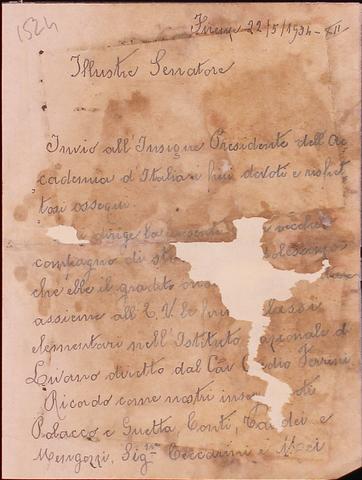 1524
Firenze 22/5/1934-XII
Illustre Senatore
Invio all'Insigne Presidente dell'Ac
cademia d'Italia i più devoti e rispet
tosi ossequi.
dirige la presente vecchio
compagno di
che ebbe il gradito
assieme all'E. V. le classi
elementari nell'Istituto azionale di
Livorno diretto dal Cav dio Ferrini
Ricordo come nostri inse
Polacco e Guetta, Conti, e
Mengozzi, Sig.re Ceccarini e